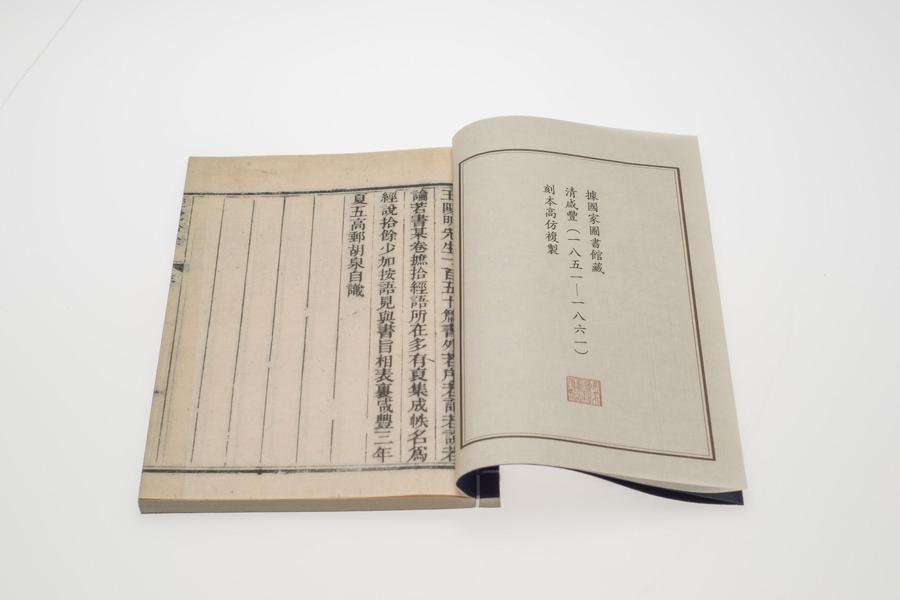 據國家圖書館藏
清咸豐（一八五一—一八六一）
刻本高仿複製
王陽明先生一百五十篇書外若序若記若說若
論若書某卷摭拾經語所在多有夏集成帙名為
經說拾餘少加按語見與書旨相表裏咸豐三年
夏五高郵胡泉自識